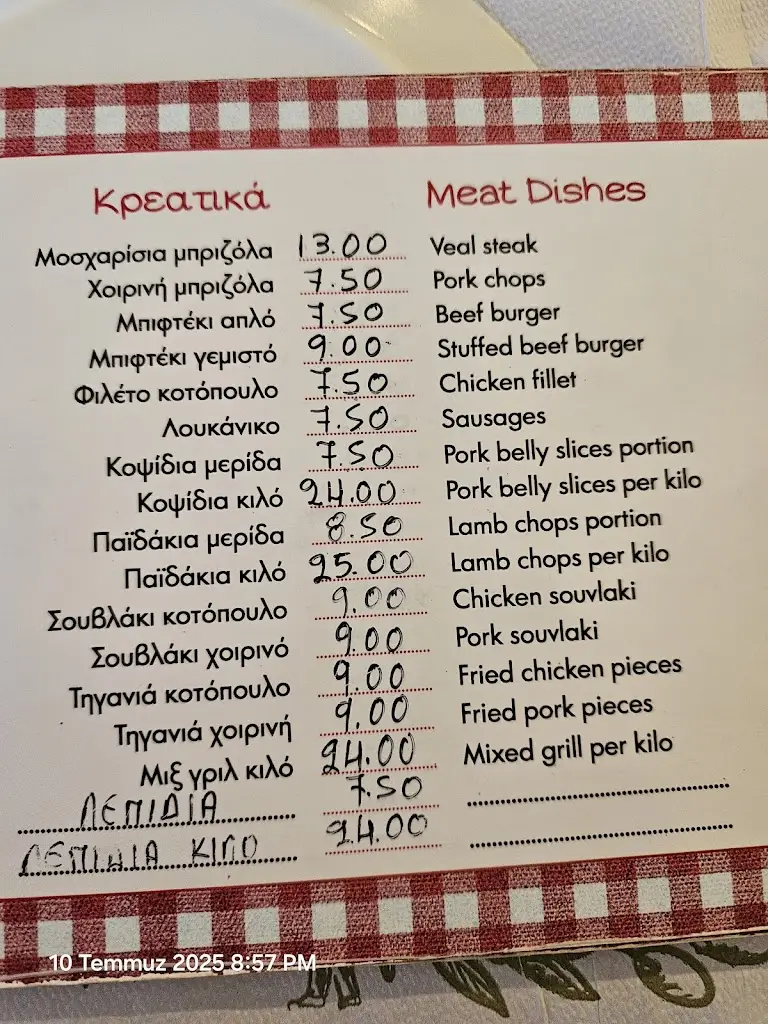 Κρεατικά Meat Dishes
Μοσχαρίσια μπριζόλα 13.00 Veal steak
Χοιρινή μπριζόλα 7.50 Pork chops
Μπιφτέκι απλό 7.50 Beef burger
Μπιφτέκι γεμιστό 9.00 Stuffed beef burger
Φιλέτο κοτόπουλο 7.50 Chicken fillet
Λουκάνικο 7.50 Sausages
Κοψίδια μερίδα 7.50 Pork belly slices portion
Κοψίδια κιλό 24.00 Pork belly slices per kilo
Παϊδάκια μερίδα 8.50 Lamb chops portion
Παϊδάκια κιλό 25.00 Lamb chops per kilo
Σουβλάκι κοτόπουλο 9.00 Chicken souvlaki
Σουβλάκι χοιρινό 9.00 Pork souvlaki
Τηγανιά κοτόπουλο 9.00 Fried chicken pieces
Τηγανιά χοιρινή 9.00 Fried pork pieces
Μιξ γριλ κιλό 24.00 Mixed grill per kilo
ΛΕΠΙΔΙΑ 7.50
ΛΕΠΙΔΙΑ ΚΙΛΟ 24.00
10 Temmuz 2025 8:57 PM